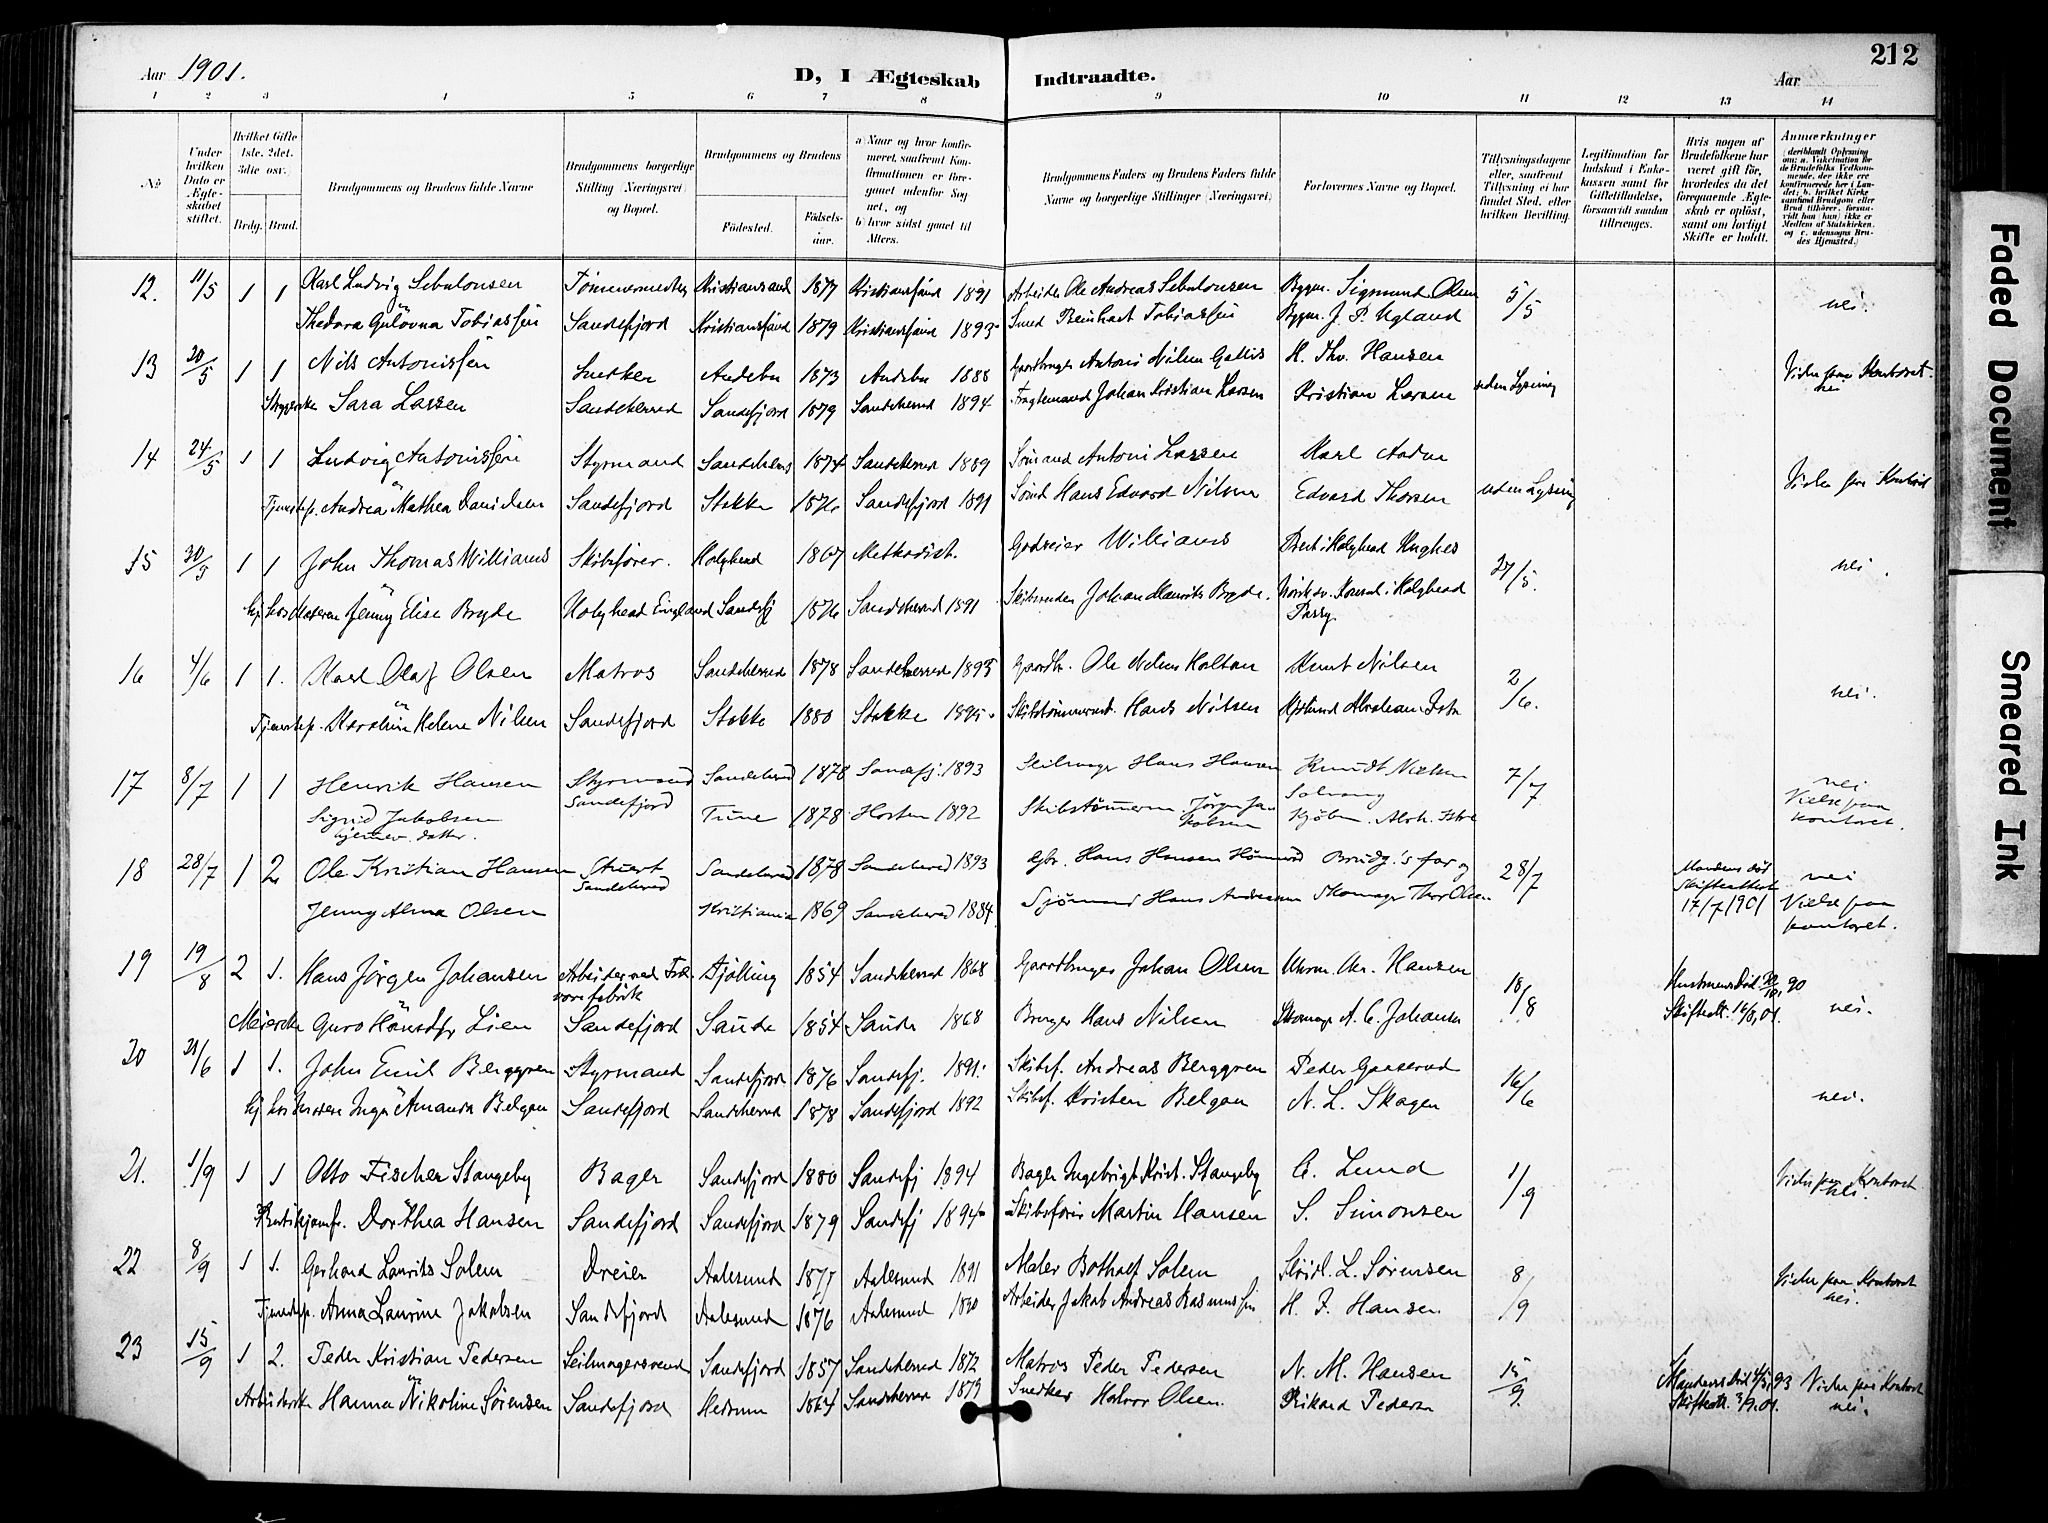 212
Aar 1901.
D, I Ægteskab Indtraadte.
Aar
1 2 3 4 5 6 7 8 9 10 11 12 13 14
No.
Under hvilken Dato er Ægteskabet stiftet.
Hvilket Gifte 1ste, 2det, 3die osv.
Brdg. Brud.
Brudgommens og Brudens fulde Navne
Brudgommens borgerlige Stilling (Næringsvei) og Bopæl.
Brudgommens og Brudens
Fødested. Fødselsaar.
a) Naar og hvor konfirmeret, saafremt Konfirmationen er foregaaet udenfor Sognet, og b) hvor sidst gaaet til Alters.
Brudgommens Faders og Brudens Faders fulde Navne og borgerlige Stillinger (Næringsvei)
Forlovernes Navne og Bopæl.
Tillysningsdagene eller, saafremt Tillysning ei har fundet Sted, efter hvilken Bevilling.
Legitimation for Indskud i Enkekassen samt for Giftetilladelse, forsaavidt saadan tiltrænges.
Hvis nogen af Brudefolkene har været gift før, hvorledes da det foregaaende Ægteskab er opløst, samt om lovligt Skifte er holdt.
Anmærkninger
(deriblandt Oplysning om: a. Vakcination for de Brudefolks Vedkommende, der ikke ere konfirmerede her i Landet; b. hvilket Kirkesamfund Brudgom eller Brud tilhører, forsaavidt han (hun) ikke er Medlem af Statskirken, og c. udensogns Brudes Hjemsted.)
12. 11/5 1 1 Karl Ludvig Sebulonsen Tømmermester Kristiansand 1877 Kristianssand 1891 Arbeider Ole Andreas Sebulonsen Bygm. Sigmund Olsen 5/5 nei.
Thedora Gulovna Tobiassen Sandefjord Kristianssand 1879 Kristianssand 1893 Smed Reinhart Tobiassen Bygm. J. P. Ugland
13 20/5 1 1 Nils Antonissen Snekker Andebu 1873 Andebu 1888 Gaardbruger Antoni Nilsen Gallis H. Thv. Hansen uden Lysning Vielse paa Kontoret. nei
Sara Larsen Sandeherred Sandefjord 1879 Sandeherred 1894 Fragtemand Johan Kristian Larsen Kristian Larsen
14 24/5 1 1 Ludvig Antonissen Styrmand Sandeherred 1874 Sandeherred 1889 Sømand Antoni Larsen Karl uden Lysning Vielse paa Kontoret
Tjenestep. Andrea Mathea Danielsen Sandefjord Stokke 1876 Sandefjord 1891 Hans Edvard Nilsen Edvard Thorsen
15 30/5 1 1 John Thomas Williams Skibsfører. Holyhead 1867 Methodist. Godseier Williams Prest i Holyhead Hughes 27/5. nei.
Jenny Elise Bryde Holyhead England Sandefj 1876 Sandeherred 1891 Skibsreder Johan Maurits Bryde. Norsk sv. Konsul i Holyhead Parry.
16 4/6 1 1. Karl Olaf Olsen Matros Sandeherred 1878 Sandeherred 1893 Gaardbr. Ole Nilsen Holtan Knut Nilsen 2/6. nei.
Tjenestep. Karoline Helene Nilsen Sandefjord Stokke 1880 Stokke 1895. Skibstømmermd. Hans Nilsen Abraham
17 8/7 1 1 Henrik Hansen Styrmand Sandeherred 1878 Sandefj. 1893 Seilmager Hans Hansen Knudt Nielsen Solvang 7/7 nei
Sigrid Jakobsen hjemmev. datter. Sandefjord Tune 1878 Horten 1892 Skibstømmerm. Jørgen Jakobsen Kjøbm. Abrh. Vielse paa kontoret.
18 28/7 1 2 Ole Kristian Hansen Stuert Sandeherred Sandeherred 1878 Sandeherred 1893 Gbr. Hans Hansen Brudg.'s far og 28/7 Mandens død Skifteattest 17/7 1901 nei
Jenny Alma Olsen Kristiania 1869 Sandeherred 1884 Sjømand Hans Andersen Skomager Thor Olsen Vielse paa kontoret.
19 19/8 2 1. Hans Jørgen Johansen Arbeider ved fabrik Tjølling 1854 Sandeherred 1868 Gaardbruger Johan Olsen Chr. Hansen 18/8 Hustruens Død 22/10 90 nei.
Meierske Guro Hansdtr Lien Sandefjord Saude 1854 Saude 1868 Bruger Hans Nilsen Skomager A. C. Johansen Skifteatt. 16/8, 01.
20 21/6 1 1. John Emil Berggren Styrmand Sandefjord 1876 Sandefj. 1891. Skibsf. Andreas Berggren Peder Gaaserud 16/6 nei.
Inga Amanda Belgau Sandefjord Sandeherred 1878 Sandefjord 1892 Skibsf. Kristen Belgau N. L. Skagen
21. 1/9 1 1 Otto Fischer Stangeby Bager Sandefjord 1880 Sandefj 1894 Bager Ingebrigt Krist. Stangeby C. Lund 1/9 Vielse paa Kontoret nei.
Butikjomfr. Dorthea Hansen Sandefjord Sandefjord 1879 Sandefj 1894 Skibsfører Martin Hansen S. Simonsen
22 8/9 1 1. Gerhard Laurits Solem Dreier Aalesund 1877 Aalesund 1891 Maler Botholf Solem L. Sørensen 8/9 Vielse paa Kontoret nei.
Tjenestep. Anna Laurine Jakobsen Sandefjord Aalesund 1876 Aalesund 1890 Arbeider Jakob Andreas Rasmussen H. J. Hansen.
23 15/9 1 2. Peder Kristian Pedersen Seilmagersvend Sandefjord 1857 Sandeherred 1872 Matros Peder Pedersen N. M. Hansen 15/9. Mandens Død 93 Vielse paa Kontoret
Arbeiderske Hanna Nikoline Sørensen Sandefjord Hedrum 1864 Sandeherred 1879 Snedker Halvor Olsen. Rikard Pedersen Skifteatt. 3/9. 01. nei.
Faded Document
Smeared Ink